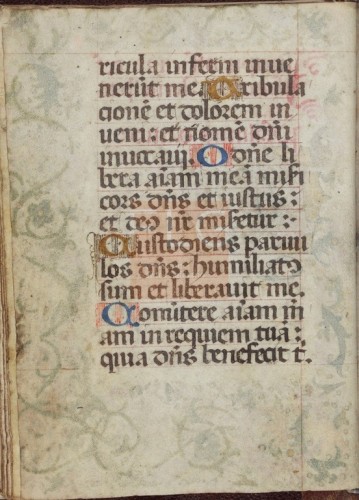 ricula inferni inue
nerūt me. Tribula
cionē et dolorem in
ueni: et nomē dn̄i
inuocaui. O dn̄e li
bera aīam meā misi
cors dn̄s et iustus:
et deꝰ nr̄ misetur:
Custodiens paruu
los dn̄s: humiliatꝰ
sum et liberauit me.
Conuertere aīam m̄
am in requiem tuā:
quia dn̄s benefecit t̄.